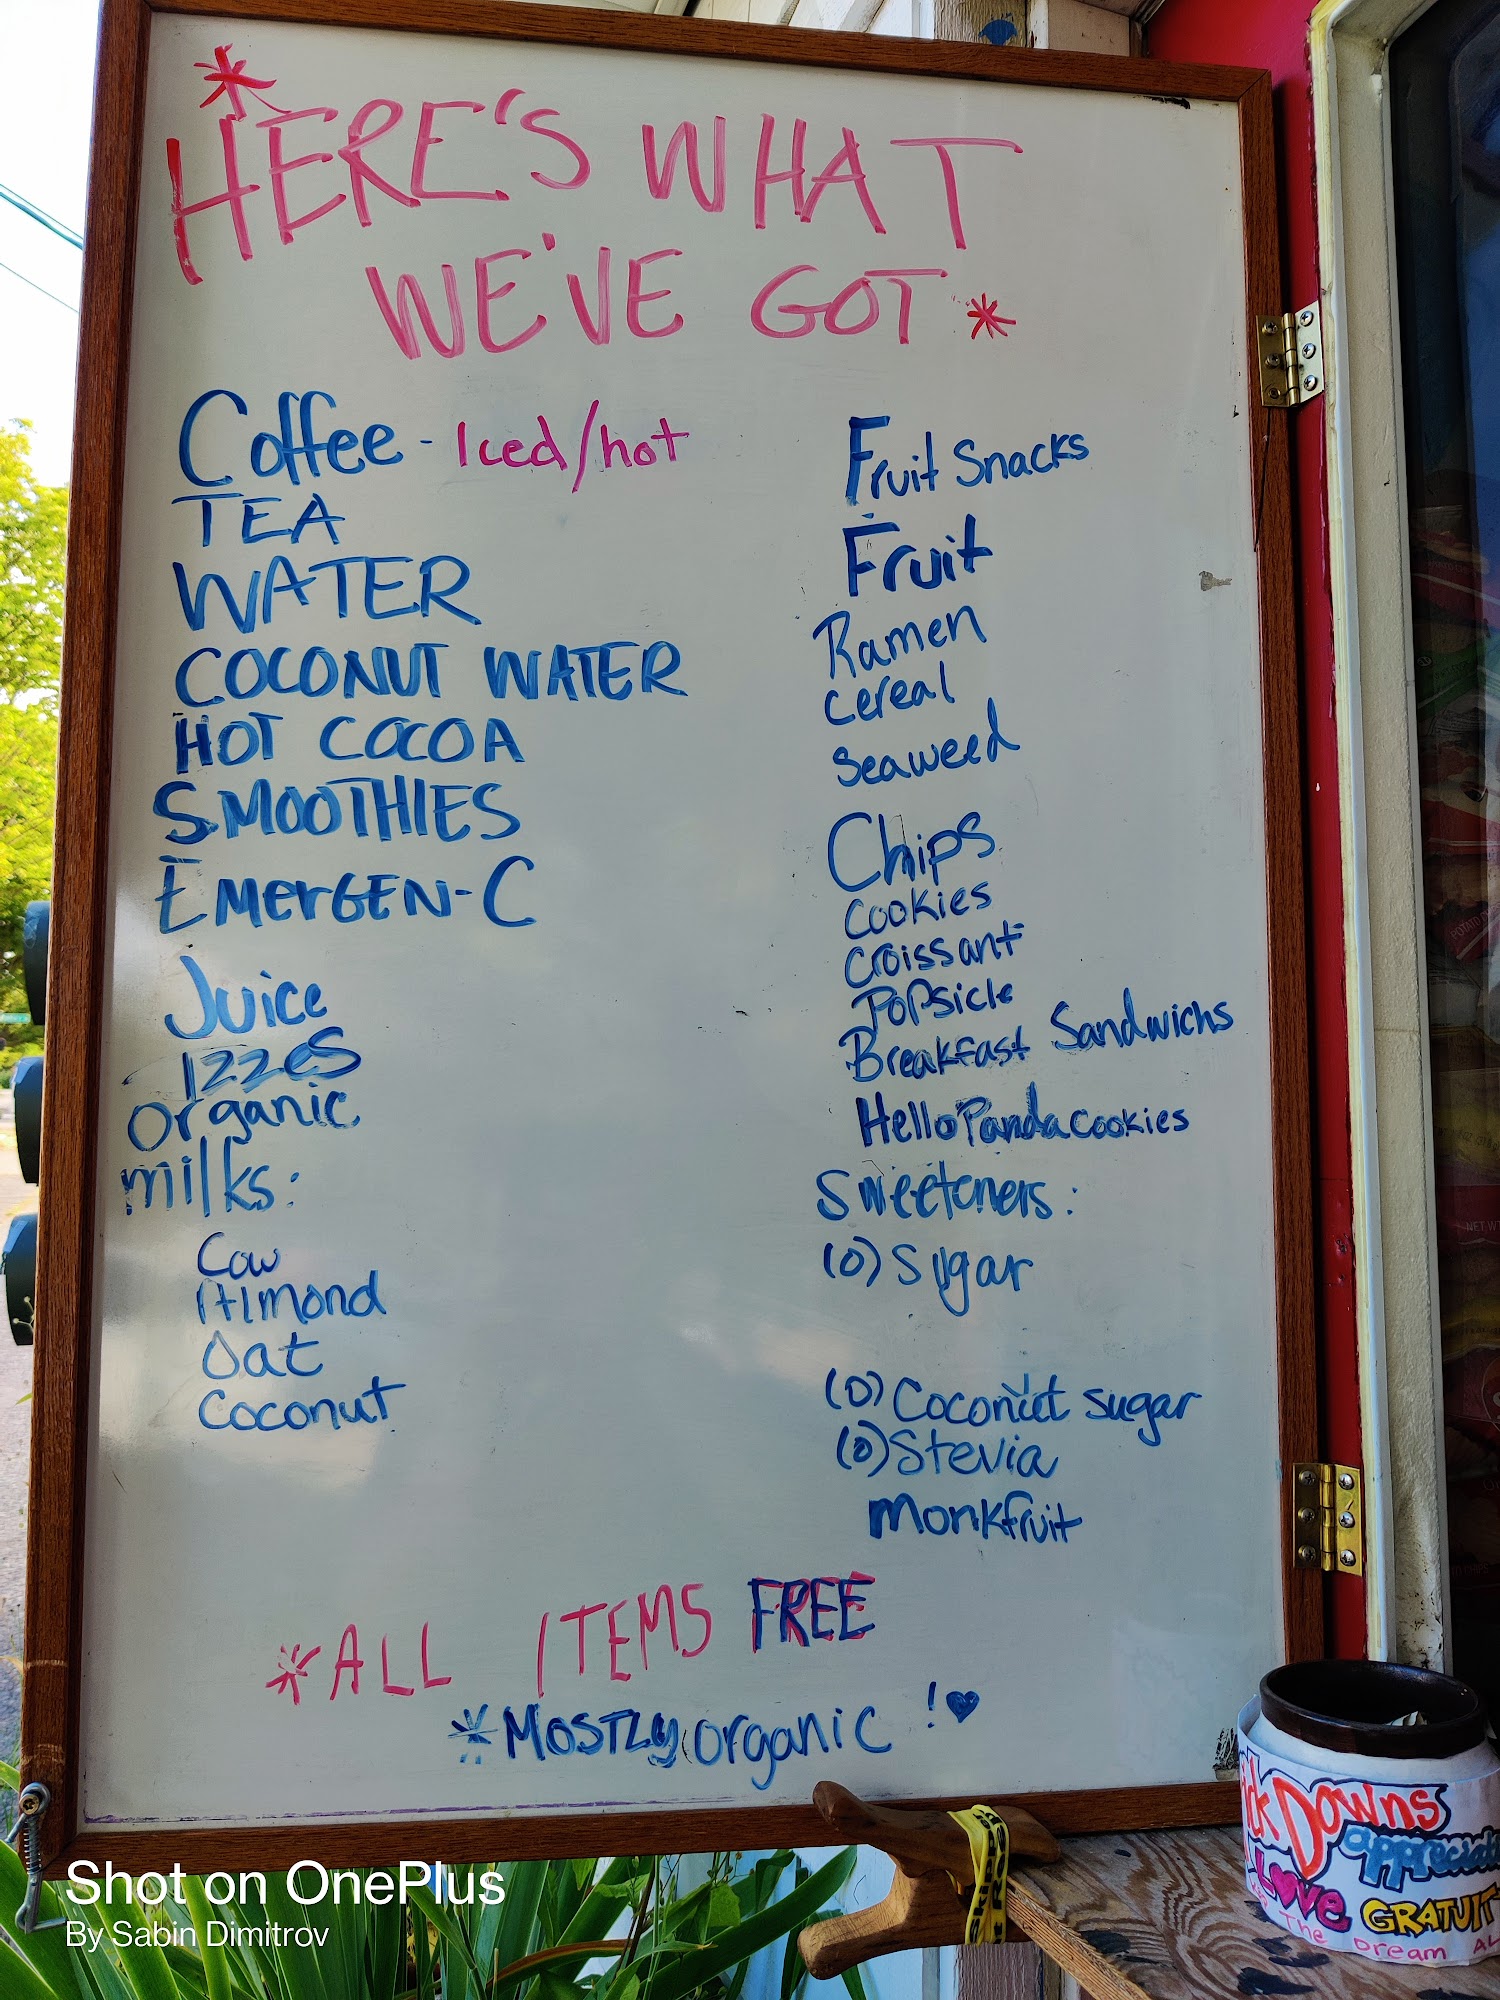 *HERE'S WHAT
WE'VE GOT*
Coffee - Iced/hot
TEA
WATER
COCONUT WATER
HOT COCOA
SMOOTHIES
EMerGEN-C
Juice
IZZES
Organic
milks:
Cow
Almond
Oat
Coconut
Fruit Snacks
Fruit
Ramen
cereal
Seaweed
Chips
Cookies
Croissant
Popsicle
Breakfast Sandwichs
Hello Panda Cookies
Sweeteners:
(O) Sugar
(O) Coconut sugar
(O) Stevia
monkfruit
*ALL ITEMS FREE
*MOSTLY organic !♥
Downs
LOVE
The Dream
SKIPPER
Shot on OnePlus
By Sabin Dimitrov